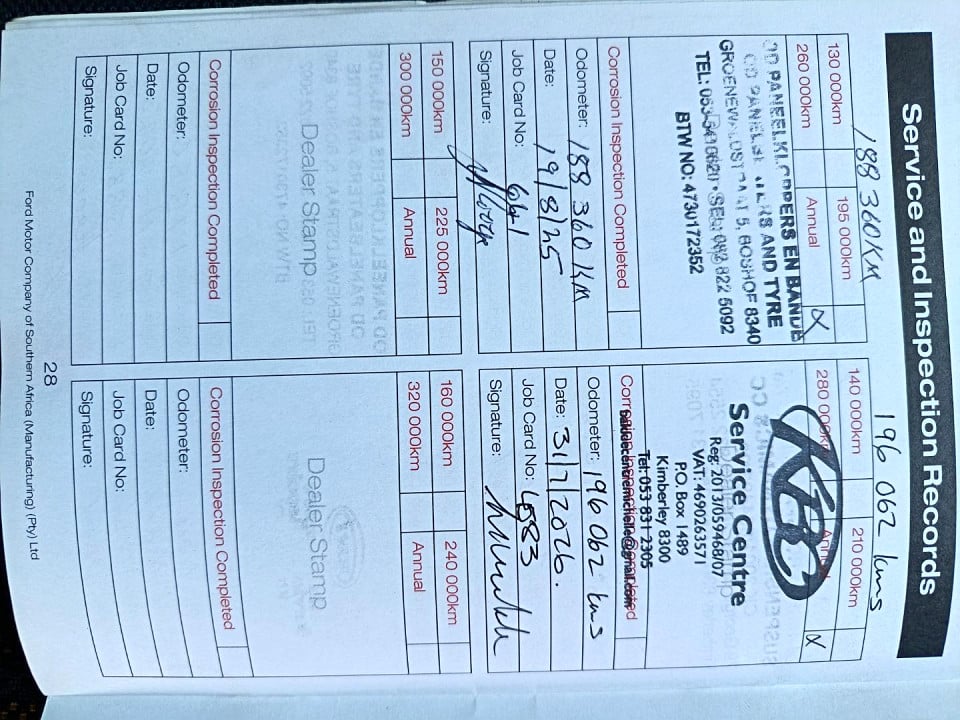 Service and Inspection Records
188 360KM
130 000km 195 000km
260 000km Annual X
OD PANEELKLOPPERS EN BANDE
OD PANELBEATERS AND TYRE
GROENEWALDSTRAAT 5, BOSHOF 8340
TEL: 053-541 0620 • SEL: 082 822 5092
BTW NO: 4730172352
Corrosion Inspection Completed
Odometer: 188 360 KM
Date: 19/8/25
Job Card No:
Signature:
196 062 kms
140 000km 210 000km
280 000km Annual X
Service Centre
Reg: 2013/059468/07
VAT: 4690263571
P.O. Box 1489
Kimberley 8300
Tel: 053 831 2305
Corrosion Inspection Completed
Odometer: 196 062 kms
Date: 31/7/2026.
Job Card No: 4583
Signature:
150 000km 225 000km
300 000km Annual
Dealer Stamp
Corrosion Inspection Completed
Odometer:
Date:
Job Card No:
Signature:
160 000km 240 000km
320 000km Annual
Dealer Stamp
Corrosion Inspection Completed
Odometer:
Date:
Job Card No:
Signature:
28
Ford Motor Company of Southern Africa (Manufacturing) (Pty) Ltd